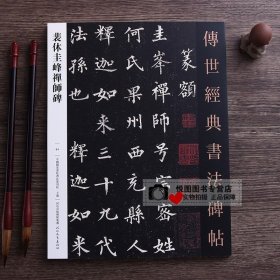 傳世經典書法碑帖
篆額
圭峯禪師号宗密姓
何氏果州西充縣人
釋迦如来三十九代
法孫也 釋迦如来
裴休圭峰禪師碑